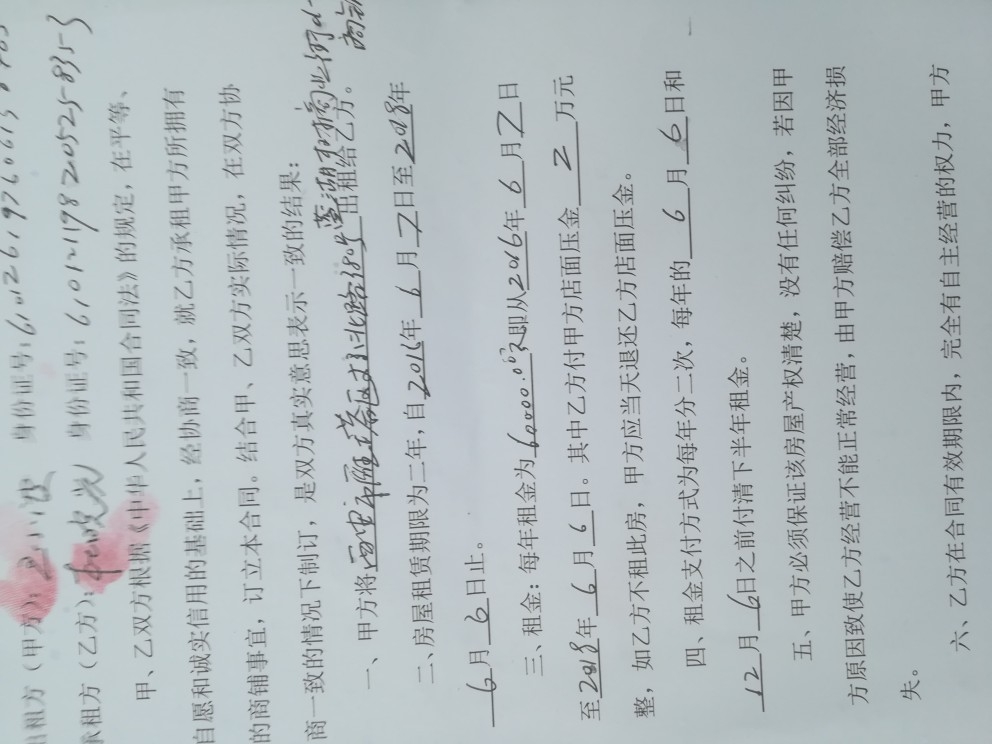 租方（甲方）： 身份证号：
承租方（乙方）： 身份证号：
甲、乙双方根据《中华人民共和国合同法》的规定，在平等、
自愿和诚实信用的基础上，经协商一致，就乙方承租甲方所拥有
的商铺事宜，订立本合同。结合甲、乙双方实际情况，在双方协
商一致的情况下制订，是双方真实意思表示一致的结果：
一、甲方将西安市雁塔区 出租给乙方。
二、房屋租赁期限为二年，自2016年6月7日至2018年
6月6日止。
三、租金：每年租金为60000.00元即从2016年6月7日
至2018年6月6日。其中乙方付甲方店面压金 2 万元
整，如乙方不租此房，甲方应当天退还乙方店面压金。
四、租金支付方式为每年分二次，每年的 6 月 6 日和
12月6日之前付清下半年租金。
五、甲方必须保证该房屋产权清楚，没有任何纠纷，若因甲
方原因致使乙方经营不能正常经营，由甲方赔偿乙方全部经济损
失。
六、乙方在合同有效期限内，完全有自主经营的权力，甲方